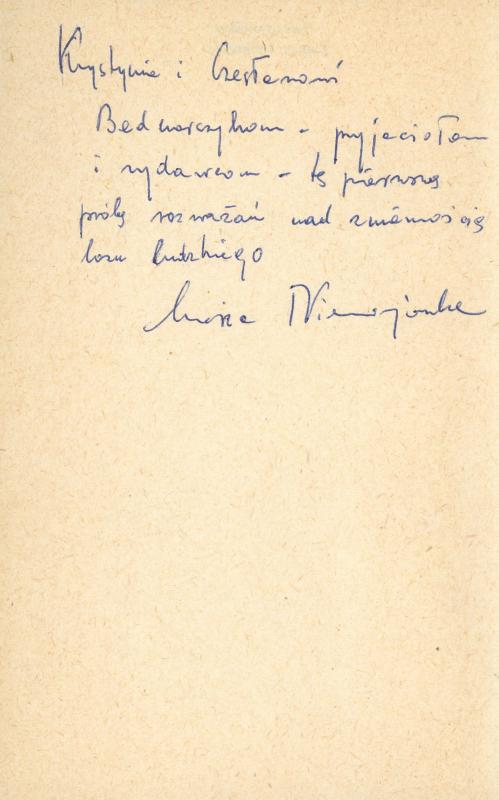 Krystynie i Czesławowi
Bednarczykom – przyjaciołom
i wydawcom – tę pierwszą
próbę rozważań nad zmiennością
losu ludzkiego
Niemojowska